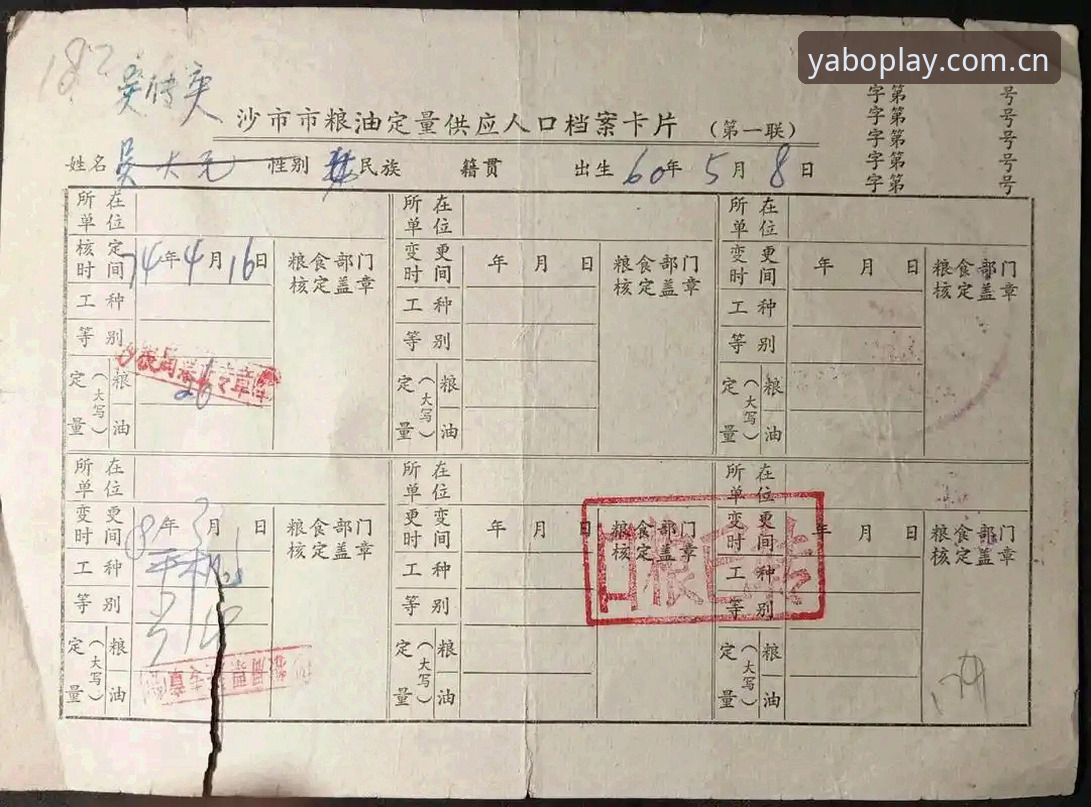 yaboplay.com.cn
182
沙市市粮油定量供应人口档案卡片 (第一联)
字第 号
字第 号
字第 号
字第 号
字第 号
姓名 吴大 性别 民族 籍贯 出生 60年 5月 8日
所在单位 所在单位 所在单位
核定时间 74年4月16日 粮食部门核定盖章 变更时间 年 月 日 粮食部门核定盖章 变更时间 年 月 日 粮食部门核定盖章
工种 工种 工种
等别 等别 等别
定量(大写) 粮 26 定量(大写) 粮 定量(大写) 粮
油 油 油
所在单位 所在单位 所在单位
变更时间 年 月 日 粮食部门核定盖章 变更时间 年 月 日 粮食部门核定盖章 变更时间 年 月 日 粮食部门核定盖章
工种 工种 工种
等别 等别 等别
定量(大写) 粮 定量(大写) 粮 定量(大写) 粮
油 油 油